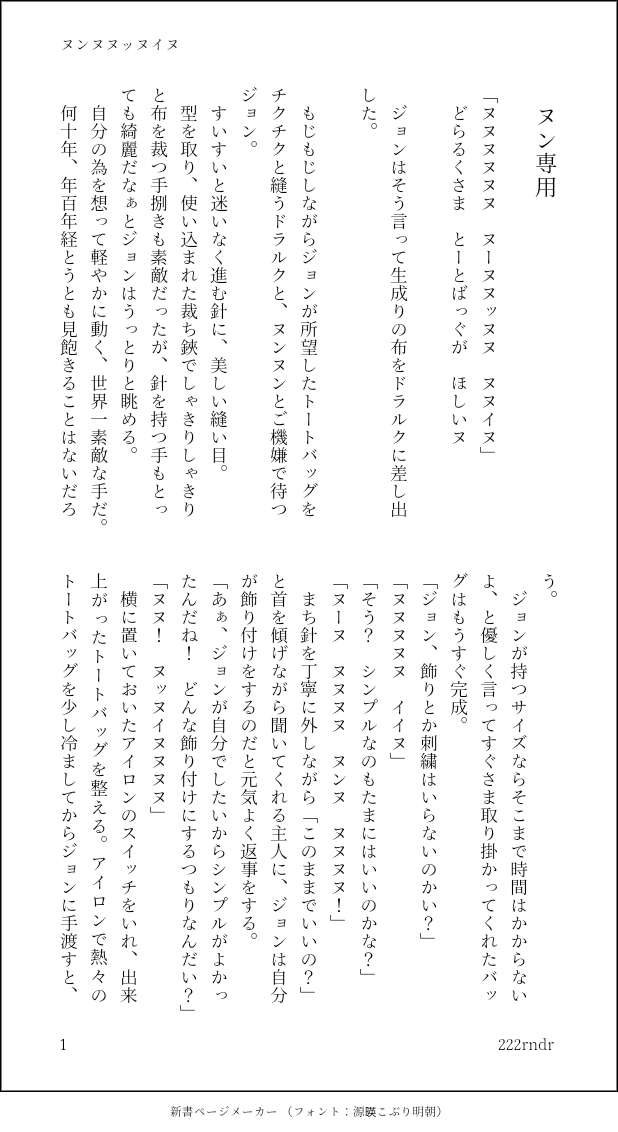 ヌンヌヌッヌイヌ
ヌン専用
「ヌヌヌヌヌヌ　ヌーヌヌッヌヌ　ヌヌイヌ」
どらるくさま　とーとばっぐが　ほしいヌ
ジョンはそう言って生成りの布をドラルクに差し出
した。
もじもじしながらジョンが所望したトートバッグを
チクチクと縫うドラルクと、ヌンヌンとご機嫌で待つ
ジョン。
すいすいと迷いなく進む針に、美しい縫い目。
型を取り、使い込まれた裁ち鋏でしゃきりしゃきり
と布を裁つ手捌きも素敵だったが、針を持つ手もとっ
ても綺麗だなぁとジョンはうっとりと眺める。
自分の為を想って軽やかに動く、世界一素敵な手だ。
何十年、年百年経とうとも見飽きることはないだろ
う。
ジョンが持つサイズならそこまで時間はかからない
よ、と優しく言ってすぐさま取り掛かってくれたバッ
グはもうすぐ完成。
「ジョン、飾りとか刺繍はいらないのかい？」
「ヌヌヌヌヌ　イイヌ」
「そう？　シンプルなのもたまにはいいのかな？」
「ヌーヌ　ヌヌヌヌ　ヌンヌ　ヌヌヌヌ！」
まち針を丁寧に外しながら「このままでいいの？」
と首を傾げながら聞いてくれる主人に、ジョンは自分
が飾り付けをするのだと元気よく返事をする。
「あぁ、ジョンが自分でしたいからシンプルがよかっ
たんだね！　どんな飾り付けにするつもりなんだい？」
「ヌヌ！　ヌッヌイヌヌヌヌ」
横に置いておいたアイロンのスイッチをいれ、出来
上がったトートバッグを整える。アイロンで熱々の
トートバッグを少し冷ましてからジョンに手渡すと、
1
222rndr
新書ページメーカー（フォント：源暎こぶり明朝）